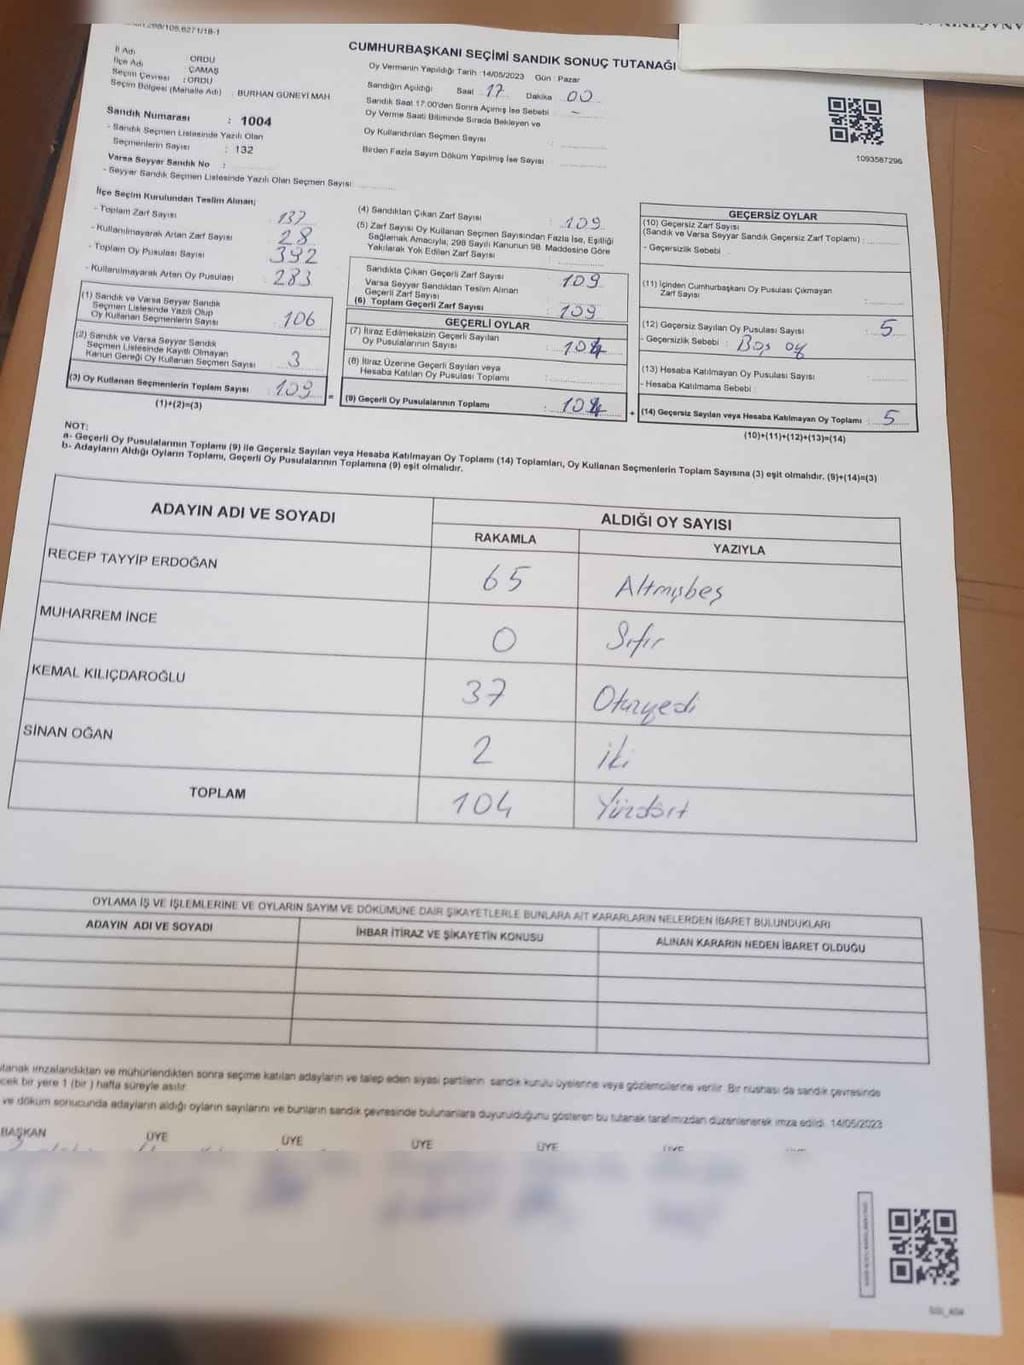 CUMHURBAŞKANI SEÇİMİ SANDIK SONUÇ TUTANAĞI
İl Adı : ORDU
İlçe Adı : ÇAMAŞ
Seçim Çevresi : ORDU
Seçim Bölgesi (Mahalle Adı) : BURHAN GÜNEYİ MAH
Oy Vermenin Yapıldığı Tarih : 14/05/2023 Gün : Pazar
Sandığın Açıldığı Saat 17 Dakika 00
Sandık Saat 17:00'den Sonra Açılmış İse Sebebi : -
Oy Verme Saati Bitiminde Sırada Bekleyen ve
Oy Kullandırılan Seçmen Sayısı :
Birden Fazla Sayım Döküm Yapılmış İse Sayısı :
1093587296
Sandık Numarası : 1004
- Sandık Seçmen Listesinde Yazılı Olan
Seçmenlerin Sayısı : 132
Varsa Seyyar Sandık No :
- Seyyar Sandık Seçmen Listesinde Yazılı Olan Seçmen Sayısı:
İlçe Seçim Kurulundan Teslim Alınan;
- Toplam Zarf Sayısı : 137
- Kullanılmayarak Artan Zarf Sayısı : 28
- Toplam Oy Pusulası Sayısı : 392
- Kullanılmayarak Artan Oy Pusulası : 283
(1) Sandık ve Varsa Seyyar Sandık
Seçmen Listesinde Yazılı Olup
Oy Kullanan Seçmenlerin Sayısı : 106
(2) Sandık ve Varsa Seyyar Sandık
Seçmen Listesinde Kayıtlı Olmayan
Kanun Gereği Oy Kullanan Seçmen Sayısı : 3
(3) Oy Kullanan Seçmenlerin Toplam Sayısı : 109
(1)+(2)=(3)
(4) Sandıktan Çıkan Zarf Sayısı : 109
(5) Zarf Sayısı Oy Kullanan Seçmen Sayısından Fazla İse, Eşitliği
Sağlamak Amacıyla; 298 Sayılı Kanunun 98. Maddesine Göre
Yakılarak Yok Edilen Zarf Sayısı :
Sandıkta Çıkan Geçerli Zarf Sayısı : 109
Varsa Seyyar Sandıktan Teslim Alınan
Geçerli Zarf Sayısı :
(6) Toplam Geçerli Zarf Sayısı : 109
GEÇERLİ OYLAR
(7) İtiraz Edilmeksizin Geçerli Sayılan
Oy Pusulalarının Sayısı : 104
(8) İtiraz Üzerine Geçerli Sayılan veya
Hesaba Katılan Oy Pusulası Toplamı :
(9) Geçerli Oy Pusulalarının Toplamı : 104
GEÇERSİZ OYLAR
(10) Geçersiz Zarf Sayısı
(Sandık ve Varsa Seyyar Sandık Geçersiz Zarf Toplamı) :
- Geçersizlik Sebebi :
(11) İçinden Cumhurbaşkanı Oy Pusulası Çıkmayan
Zarf Sayısı :
(12) Geçersiz Sayılan Oy Pusulası Sayısı : 5
- Geçersizlik Sebebi : Boş oy
(13) Hesaba Katılmayan Oy Pusulası Sayısı :
- Hesaba Katılmama Sebebi :
(14) Geçersiz Sayılan veya Hesaba Katılmayan Oy Toplamı : 5
(10)+(11)+(12)+(13)=(14)
NOT:
a- Geçerli Oy Pusulalarının Toplamı (9) ile Geçersiz Sayılan veya Hesaba Katılmayan Oy Toplamı (14) Toplamları, Oy Kullanan Seçmenlerin Toplam Sayısına (3) eşit olmalıdır. (9)+(14)=(3)
b- Adayların Aldığı Oyların Toplamı, Geçerli Oy Pusulalarının Toplamına (9) eşit olmalıdır.
ADAYIN ADI VE SOYADI
ALDIĞI OY SAYISI
RAKAMLA YAZIYLA
RECEP TAYYİP ERDOĞAN 65 Altmışbeş
MUHARREM İNCE 0 Sıfır
KEMAL KILIÇDAROĞLU 37 Otuzyedi
SİNAN OĞAN 2 iki
TOPLAM 104 Yüzdört
OYLAMA İŞ VE İŞLEMLERİNE VE OYLARIN SAYIM VE DÖKÜMÜNE DAİR ŞİKAYETLERLE BUNLARA AİT KARARLARIN NELERDEN İBARET BULUNDUKLARI
ADAYIN ADI VE SOYADI İHBAR İTİRAZ VE ŞİKAYETİN KONUSU ALINAN KARARIN NEDEN İBARET OLDUĞU
imzalandıktan ve mühürlendikten sonra seçime katılan adayların ve talep eden siyasi partilerin sandık kurulu üyelerine veya gözlemcilerine verilir. Bir nüshası da sandık çevresinde
bir yere 1 (bir ) hafta süreyle asılır.
ve döküm sonucunda adayların aldığı oyların sayılarını ve bunların sandık çevresinde bulunanlara duyurulduğunu gösteren bu tutanak tarafımızdan düzenlenerek imza edildi. 14/05/2023
BAŞKAN ÜYE ÜYE ÜYE ÜYE ÜYE